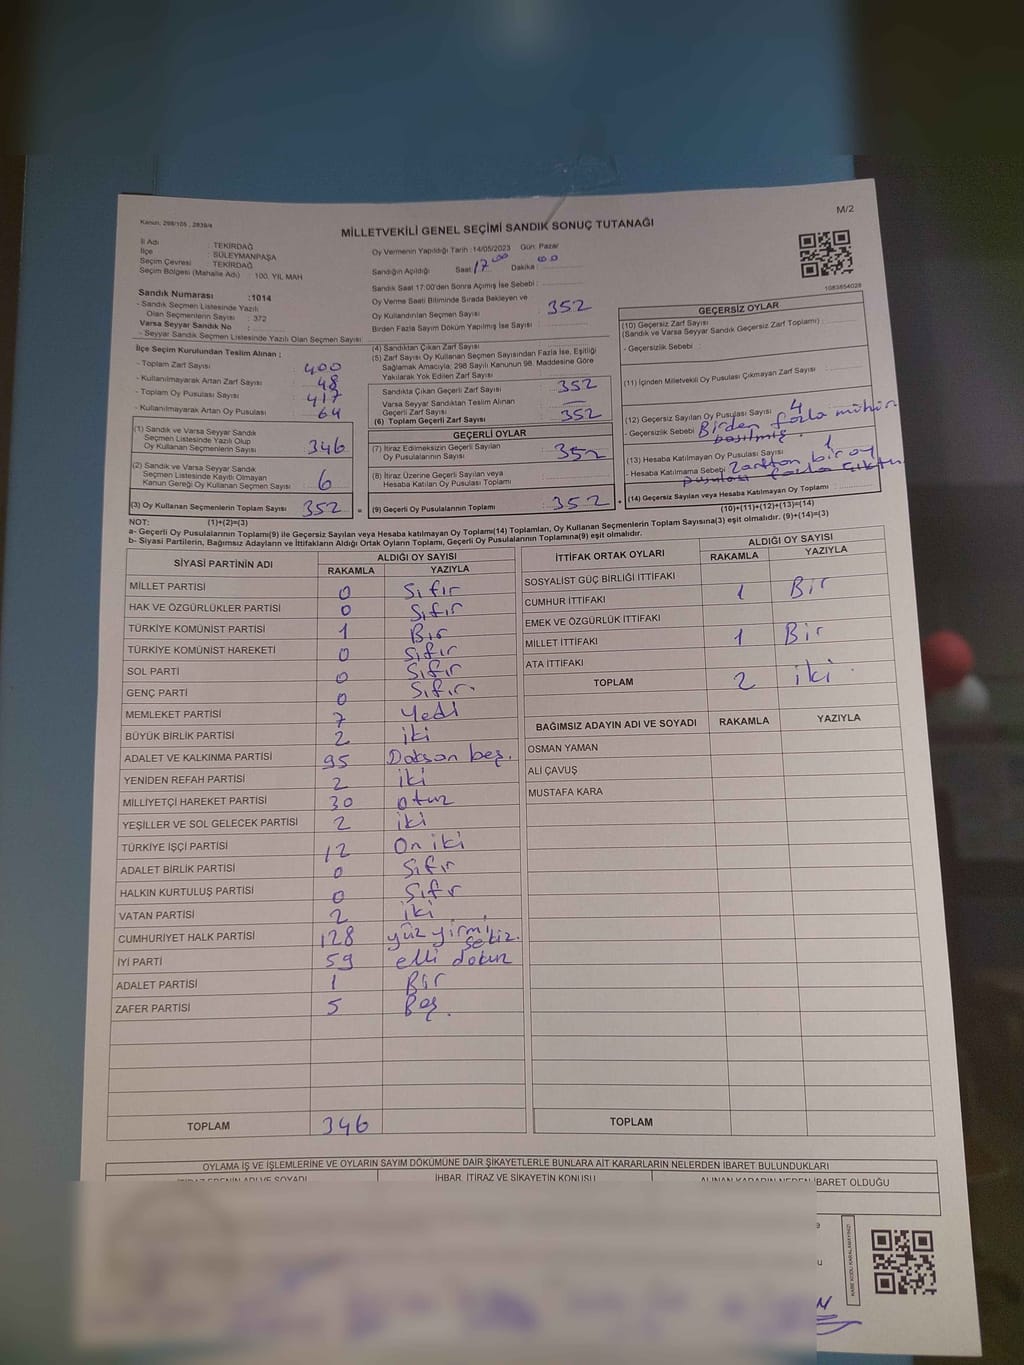 Kanun; 298/105 , 2839/4
M/2
MİLLETVEKİLİ GENEL SEÇİMİ SANDIK SONUÇ TUTANAĞI
İl Adı : TEKİRDAĞ
İlçe : SÜLEYMANPAŞA
Seçim Çevresi : TEKİRDAĞ
Seçim Bölgesi (Mahalle Adı) : 100. YIL MAH
Sandık Numarası :1014
- Sandık Seçmen Listesinde Yazılı
Olan Seçmenlerin Sayısı : 372
Varsa Seyyar Sandık No :
- Seyyar Sandık Seçmen Listesinde Yazılı Olan Seçmen Sayısı
İlçe Seçim Kurulundan Teslim Alınan ;
- Toplam Zarf Sayısı : 400
- Kullanılmayarak Artan Zarf Sayısı : 48
- Toplam Oy Pusulası Sayısı : 417
- Kullanılmayarak Artan Oy Pusulası : 64
(1) Sandık ve Varsa Seyyar Sandık
Seçmen Listesinde Yazılı Olup
Oy Kullanan Seçmenlerin Sayısı : 346
(2) Sandık ve Varsa Seyyar Sandık
Seçmen Listesinde Kayıtlı Olmayan
Kanun Gereği Oy Kullanan Seçmen Sayısı : 6
(3) Oy Kullanan Seçmenlerin Toplam Sayısı : 352 =
(1)+(2)=(3)
Oy Vermenin Yapıldığı Tarih :14/05/2023 Gün: Pazar
Sandığın Açıldığı Saat: 17 00 Dakika : 00
Sandık Saat 17:00'den Sonra Açımış İse Sebebi :
Oy Verme Saati Bitiminde Sırada Bekleyen ve
Oy Kullandırılan Seçmen Sayısı : 352
Birden Fazla Sayım Döküm Yapılmış İse Sayısı :
(4) Sandıktan Çıkan Zarf Sayısı :
(5) Zarf Sayısı Oy Kullanan Seçmen Sayısından Fazla İse, Eşitliği
Sağlamak Amacıyla; 298 Sayılı Kanunun 98. Maddesine Göre
Yakılarak Yok Edilen Zarf Sayısı
Sandıkta Çıkan Geçerli Zarf Sayısı : 352
Varsa Seyyar Sandıktan Teslim Alınan
Geçerli Zarf Sayısı : —
(6) Toplam Geçerli Zarf Sayısı : 352
GEÇERLİ OYLAR
(7) İtiraz Edilmeksizin Geçerli Sayılan
Oy Pusulalarının Sayısı : 352
(8) İtiraz Üzerine Geçerli Sayılan veya
Hesaba Katılan Oy Pusulası Toplamı :
(9) Geçerli Oy Pusulalarının Toplamı : 352 +
1083854028
GEÇERSİZ OYLAR
(10) Geçersiz Zarf Sayısı
(Sandık ve Varsa Seyyar Sandık Geçersiz Zarf Toplamı) :
- Geçersizlik Sebebi :
(11) İçinden Milletvekili Oy Pusulası Çıkmayan Zarf Sayısı :
(12) Geçersiz Sayılan Oy Pusulası Sayısı : 4
- Geçersizlik Sebebi : Birden fazla mühür
basılmış.
(13) Hesaba Katılmayan Oy Pusulası Sayısı : 1
- Hesaba Katılmama Sebebi : Zarftan bir oy
pusulası fazla çıktı
(14) Geçersiz Sayılan veya Hesaba Katılmayan Oy Toplamı :
(10)+(11)+(12)+(13)=(14)
NOT:
a- Geçerli Oy Pusulalarının Toplamı(9) ile Geçersiz Sayılan veya Hesaba Katılmayan Oy Toplamı(14) Toplamları, Oy Kullanan Seçmenlerin Toplam Sayısına(3) eşit olmalıdır. (9)+(14)=(3)
b- Siyasi Partilerin, Bağımsız Adayların ve İttifakların Aldığı Ortak Oyların Toplamı, Geçerli Oy Pusulalarının Toplamına(9) eşit olmalıdır.
SİYASİ PARTİNİN ADI ALDIĞI OY SAYISI
RAKAMLA YAZIYLA
MİLLET PARTİSİ 0 Sıfır
HAK VE ÖZGÜRLÜKLER PARTİSİ 0 Sıfır
TÜRKİYE KOMÜNİST PARTİSİ 1 Bir
TÜRKİYE KOMÜNİST HAREKETİ 0 Sıfır
SOL PARTİ 0 Sıfır
GENÇ PARTİ 0 Sıfır.
MEMLEKET PARTİSİ 7 Yedi
BÜYÜK BİRLİK PARTİSİ 2 iki
ADALET VE KALKINMA PARTİSİ 95 Doksan beş.
YENİDEN REFAH PARTİSİ 2 iki
MİLLİYETÇİ HAREKET PARTİSİ 30 otuz
YEŞİLLER VE SOL GELECEK PARTİSİ 2 iki
TÜRKİYE İŞÇİ PARTİSİ 12 On iki
ADALET BİRLİK PARTİSİ 0 Sıfır
HALKIN KURTULUŞ PARTİSİ 0 Sıfır
VATAN PARTİSİ 2 iki
CUMHURİYET HALK PARTİSİ 128 yüz yirmi sekiz.
İYİ PARTİ 59 elli dokuz
ADALET PARTİSİ 1 Bir
ZAFER PARTİSİ 5 Beş.
TOPLAM 346
İTTİFAK ORTAK OYLARI ALDIĞI OY SAYISI
RAKAMLA YAZIYLA
SOSYALİST GÜÇ BİRLİĞİ İTTİFAKI
CUMHUR İTTİFAKI 1 Bir
EMEK VE ÖZGÜRLÜK İTTİFAKI
MİLLET İTTİFAKI 1 Bir
ATA İTTİFAKI
TOPLAM 2 iki.
BAĞIMSIZ ADAYIN ADI VE SOYADI RAKAMLA YAZIYLA
OSMAN YAMAN
ALİ ÇAVUŞ
MUSTAFA KARA
TOPLAM
OYLAMA İŞ VE İŞLEMLERİNE VE OYLARIN SAYIM DÖKÜMÜNE DAİR ŞİKAYETLERLE BUNLARA AİT KARARLARIN NELERDEN İBARET BULUNDUKLARI
İTİRAZ EDENİN ADI VE SOYADI İHBAR, İTİRAZ VE ŞİKAYETİN KONUSU ALINAN KARARIN NEDEN İBARET OLDUĞU
KARE KODU KARALAMAYINIZ!